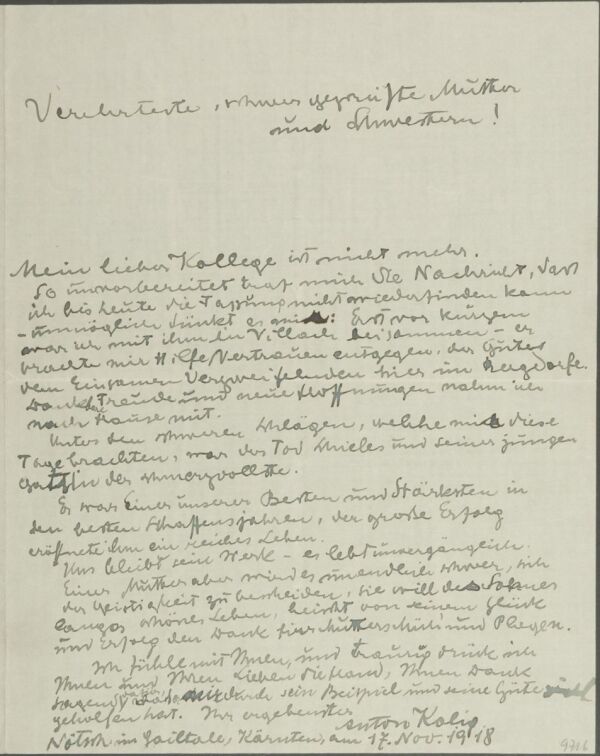 Verehrteste, schwer geprüfte Mutter
und Schwestern!
Mein lieber Kollege ist nicht mehr.
So unvorbereitet traf mich die Nachricht, dass
ich bis heute die Fassung nicht wiederfinden kann
- unmöglich dünkt es mir: Erst vor kurzem
war ich mit ihm in Villach beisammen - er
brachte mir Hilfe Vertrauen entgegen, der Gute
dem Einsamen Verzweifelnden hier im Bergdorfe.
Dank, Freude und neue Hoffnungen nahm ich
nach Hause mit.
Unter den schweren Schlägen, welche mir diese
Tage brachten, war der Tod Schieles und seiner jungen
Gattin der schmerzvollste.
Er war Einer unserer Besten und Stärksten in
den besten Schaffensjahren, der große Erfolg
eröffnete ihm ein reiches Leben.
Uns bleibt sein Werk - es lebt unvergänglich.
Einer Mutter aber wird es unendlich schwer, sich
der Geistigkeit zu bescheiden, sie will des Sohnes
langes schönes Leben, heischt von seinem Glück
und Erfolg den Dank für Mutterschutz und Plagen.
Ich fühle mit Ihnen, und traurig drück ich
Ihnen und Ihren Lieben die Hand, Ihnen Dank
sagend, durch sein Beispiel und seine Güte
geholfen hat. Ihr ergebenster
Anton Kolig
Nötsch im Gailtale, Kärnten, am 17. Nov. 1918
9716